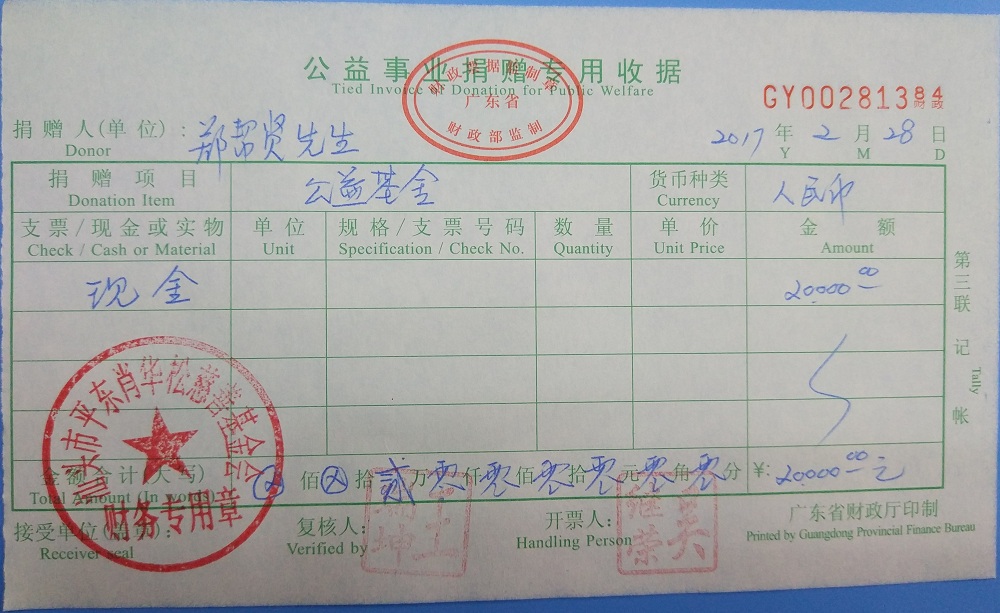 公益事业捐赠专用收据
Tied Invoice of Donation for Public Welfare
广东省
财政部监制
GY00281384
财政
捐赠人(单位): 郑帮贤先生
Donor
2017年2月28日
Y M D
捐赠项目 公益基金 货币种类 人民币
Donation Item Currency
支票/现金或实物 单位 规格/支票号码 数量 单价 金额
Check / Cash or Material Unit Specification / Check No. Quantity Unit Price Amount
现金 20000.00
金额合计(大写) 佰 拾贰万零仟零佰零拾零元零角零分 ¥: 20000.00元
Total Amount (In words)
接受单位(盖章): 复核人: 开票人: 广东省财政厅印制
Receiver seal Verified by Handling Person Printed by Guangdong Provincial Finance Bureau
第三联 记帐
Tally
汕头市平东肖华松慈善基金会
财务专用章
王坤
吴继荣